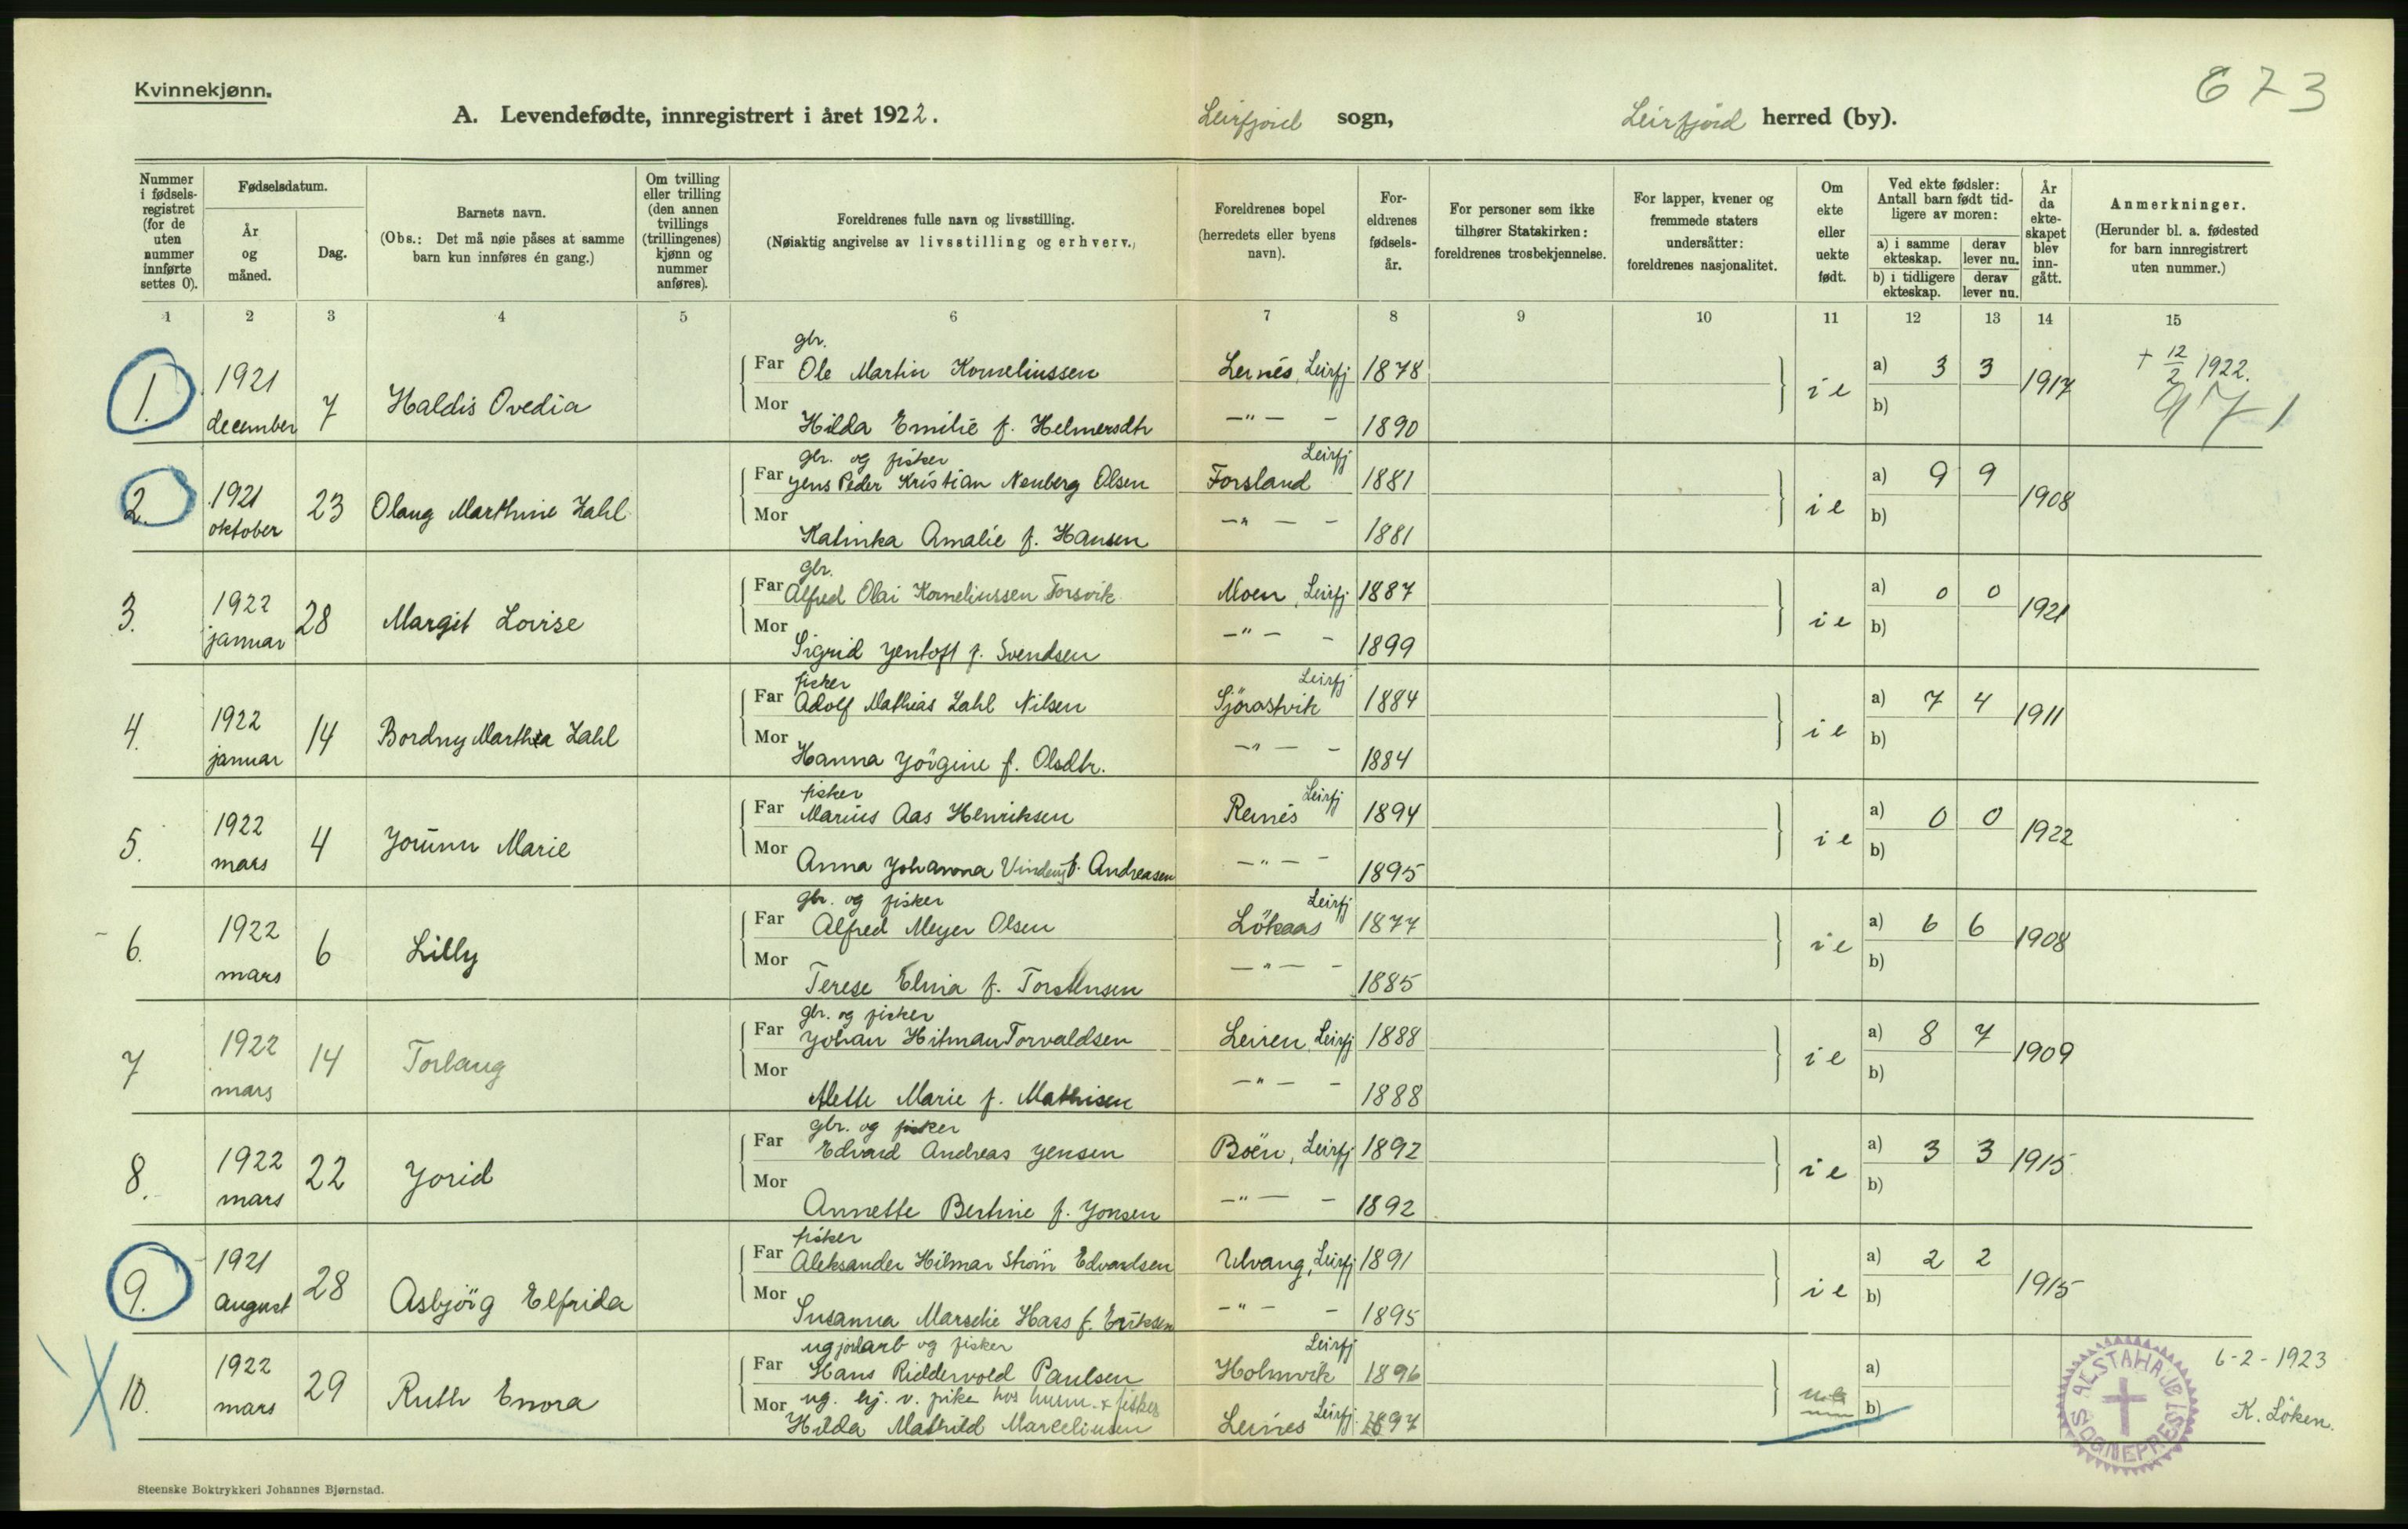 Kvinnekjønn.
673
A. Levendefødte, innregistrert i året 1922. Leirfjord sogn, Leirfjord herred (by).
Nummer i fødsels-registret (for de uten nummer innførte settes 0).
Fødselsdatum.
År og måned.
Dag.
Barnets navn.
(Obs.: Det må nøie påses at samme barn kun innføres én gang.)
Om tvilling eller trilling (den annen tvillings (trillingenes) kjønn og nummer anføres).
Foreldrenes fulle navn og livsstilling.
(Nøiaktig angivelse av livsstilling og erhverv.)
Foreldrenes bopel (herredets eller byens navn).
For-eldrenes fødsels-år.
For personer som ikke tilhører Statskirken: foreldrenes trosbekjennelse.
For lapper, kvener og fremmede staters undersåtter: foreldrenes nasjonalitet.
Om ekte eller uekte født.
Ved ekte fødsler: Antall barn født tid-ligere av moren:
a) i samme ekteskap.
derav lever nu.
b) i tidligere ekteskap.
derav lever nu.
År da ekte-skapet blev inn-gått.
Anmerkninger.
(Herunder bl. a. fødested for barn innregistrert uten nummer.)
1 2 3 4 5 6 7 8 9 10 11 12 13 14 15
gbr.
1. 1921 december 7 Haldis Ovedia
Far Ole Martin Korneliussen Leinés, Leirfj 1878 i e a) 3 3 1917 + 12/2 1922.
Mor Hilda Emilie f. Helmersdtr —"— — 1890 b) 971
gbr. og fisker Leirfj
2. 1921 oktober 23 Olaug Marthine Zahl
Far Jens Peder Kristian Neuberg Olsen Forsland 1881 i e a) 9 9 1908
Mor Kalinka Amalie f. Hansen —"— — 1881 b)
gbr.
3. 1922 januar 28 Margit Lovise
Far Alfred Olai Korneliussen Forsvik Moen, Leirfj 1887 i e a) 0 0 1921
Mor Sigrid Jentoft f. Svendsen —"— — 1899 b)
fisker Leirfj
4. 1922 januar 14 Bordny Marthea Zahl
Far Adolf Mathias Zahl Nilsen Sjörastvik 1884 i e a) 7 4 1911
Mor Hanna Jörgine f. Olsdtr. —"— — 1884 b)
fisker Leirfj
5. 1922 mars 4 Jorunn Marie
Far Marius Aas Henriksen Reinés 1894 i e a) 0 0 1922
Mor Anna Johanna f. Andreasen —"— — 1895 b)
gbr. og fisker Leirfj
6. 1922 mars 6 Lilly
Far Alfred Meyer Olsen Lökaas 1877 i e a) 6 6 1908
Mor Terese Elina f. Torstensen —"— — 1885 b)
gbr. og fisker
7 1922 mars 14 Torlaug
Far Johan Hitman Torvaldsen Leiren, Leirfj 1888 i e a) 8 7 1909
Mor Alette Marie f. Mathisen —"— — 1888 b)
gbr. og fisker
8. 1922 mars 22 Jorid
Far Edvard Andreas Jensen Böen, Leirfj 1892 i e a) 3 3 1915
Mor Annette Bertine f. Jonsen —"— — 1892 b)
fisker
9. 1921 august 28 Asbjörg Elfrida
Far Aleksander Hilmar Ström Edvardsen Ulvang, Leirfj 1891 i e a) 2 2 1915
Mor Susanna Marselie Haas f. Eriksen —"— — 1895 b)
ug jordarb og fisker Leirfj
10. 1922 mars 29 Ruth Enora
Far Hans Riddervold Paulsen Holmvik 1896 a) 6-2-1923
Mor ug. hj. v. fiske hos
Hilda Mathild Marceliusen Leinés Leirfj. 1897 b) K. Löken.
ALSTAHAUG SOGNEPREST
Steenske Boktrykkeri Johannes Bjørnstad.